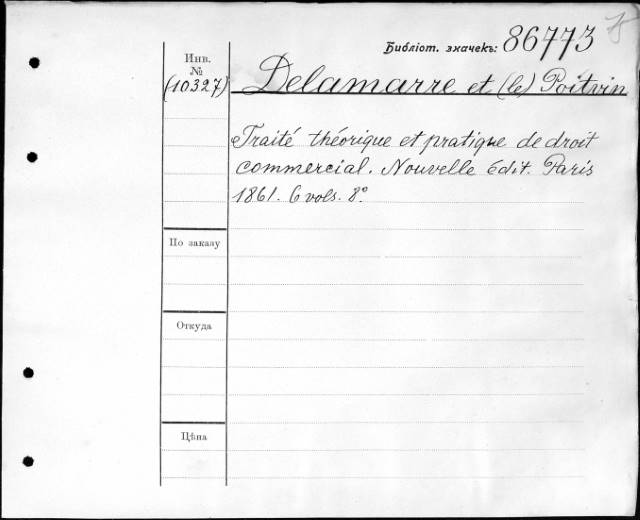 Библіот. значекъ: 86773
Инв.
№
(10327)
Delamarre et (le) Poitvin
Traité théorique et pratique de droit
commercial. Nouvelle Edit. Paris
1861. 6 vols. 8°.
По заказу
Откуда
Цѣна